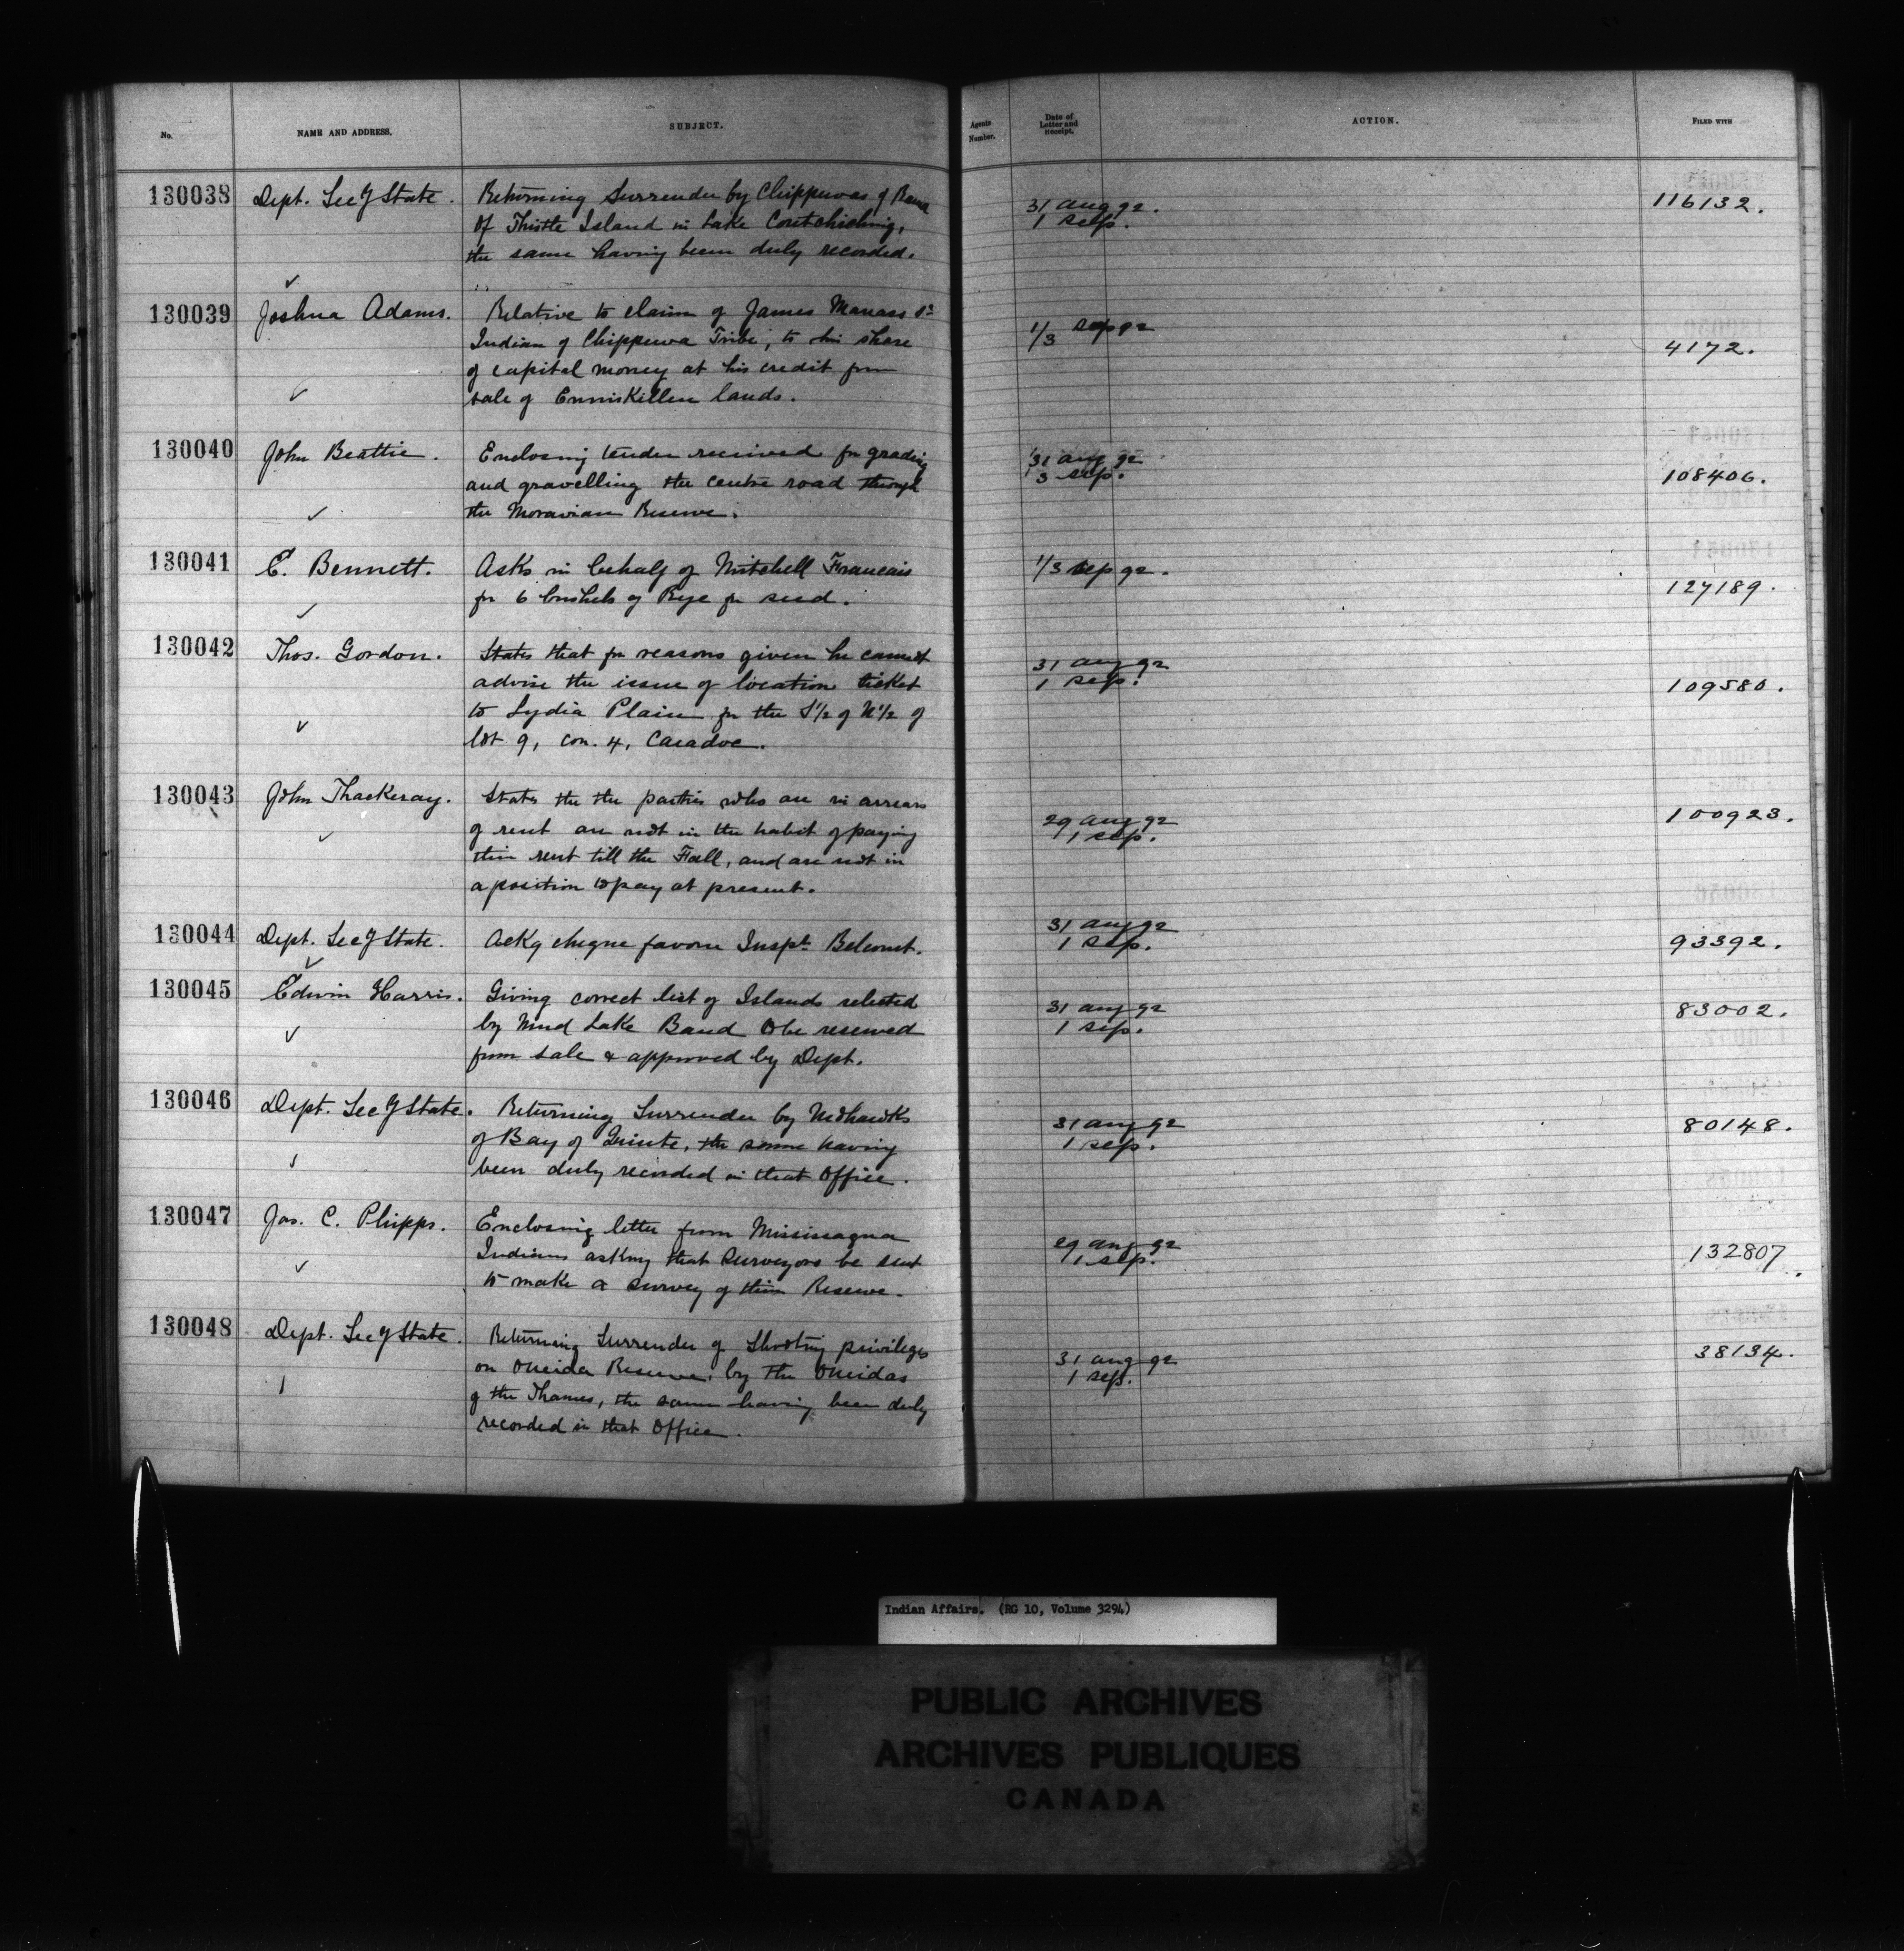 No. NAME AND ADDRESS. SUBJECT. Agents Number. Date of Letter and Receipt. ACTION. FILED WITH
130038 Dept. Secy State. Returning Surrender by Chippewas of Rama 31 aug 92. 116132.
Of Thistle Island in Lake Coutchiching, 1 sep.
the same having been duly recorded.
130039 Joshua Adams. Relative to claim of James Manass Sr 1/3 sep 92
Indian of Chippewa Tribe, to his share 4172.
of capital money at his credit from
sale of Enniskillen lands.
130040 John Beattie. Enclosing tender received for grading 31 aug 92
and gravelling the centre road through 3 sep. 108406.
the Moravian Reserve.
130041 E. Bennett. Asks in behalf of Mitchell Francais 1/3 sep 92.
for 6 bushels of Rye for seed. 127189.
130042 Thos. Gordon. States that for reasons given he cannot 31 aug 92
advise the issue of location ticket 1 sep. 109580.
to Lydia Plain for the S½ of N½ of
lot 9, con. 4, Caradoc.
130043 John Thackeray. States the the parties who are in arrears 29 aug 92 100923.
of rent are not in the habit of paying 1 sep.
their rent till the Fall, and are not in
a position to pay at present.
130044 Dept. Secy State. Ackg cheque favour Inspt. Belcourt. 31 aug 92 93392.
1 sep.
130045 Edwin Harris. Giving correct list of Islands selected 31 aug 92 83002.
by Mud Lake Band to be reserved 1 sep.
from sale & approved by Dept.
130046 Dept. Secy State. Returning Surrender by Mohawks 31 aug 92 80148.
of Bay of Quinte, the same having 1 sep.
been duly recorded in that Office.
130047 Jas. C. Phipps. Enclosing letter from Mississagua 29 aug 92 132807.
Indians asking that Surveyors be sent 1 sep.
to make a survey of their Reserve.
130048 Dept. Secy State. Returning Surrender of Shooting privileges 31 aug 92 38134.
on Oneida Reserve, by the Oneidas 1 sep.
of the Thames, the same having been duly
recorded in that Office.
Indian Affairs. (RG 10, Volume 3294)
PUBLIC ARCHIVES
ARCHIVES PUBLIQUES
CANADA